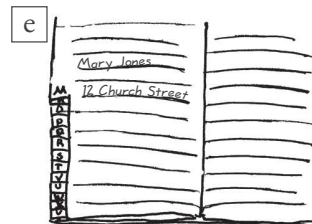 e
Mary Jones
12 Church Street
M
Q
R
S
T
U